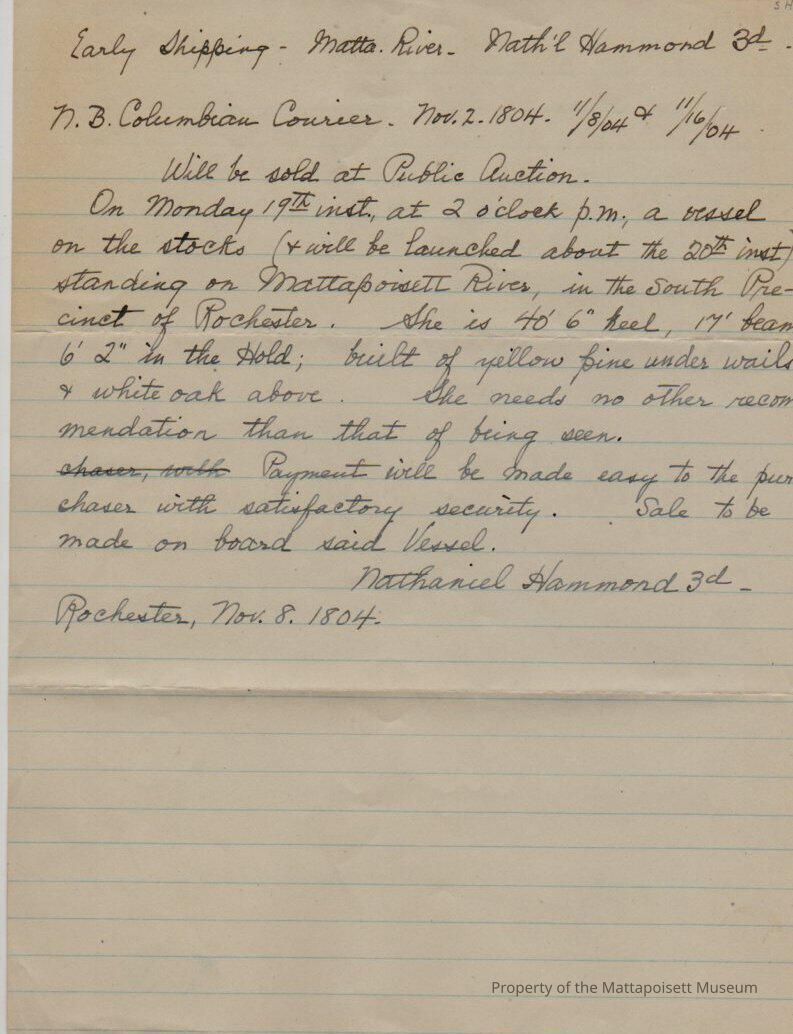 SH
Early Shipping - Matta. River - Nath'l Hammond 3d -
N.B. Columbian Courier. Nov. 2. 1804. 11/8/04 & 11/16/04
Will be sold at Public Auction.
On Monday 19th inst., at 2 o'clock p.m., a vessel
on the stocks (& will be launched about the 20th inst)
standing on Mattapoisett River, in the South Pre-
cinct of Rochester. She is 40' 6" keel, 17' beam
6' 2" in the Hold; built of yellow pine under wails
& white oak above. She needs no other recom
mendation than that of being seen.
chaser, with Payment will be made easy to the pur
chaser with satisfactory security. Sale to be
made on board said Vessel.
Nathaniel Hammond 3d -
Rochester, Nov. 8. 1804.
Property of the Mattapoisett Museum